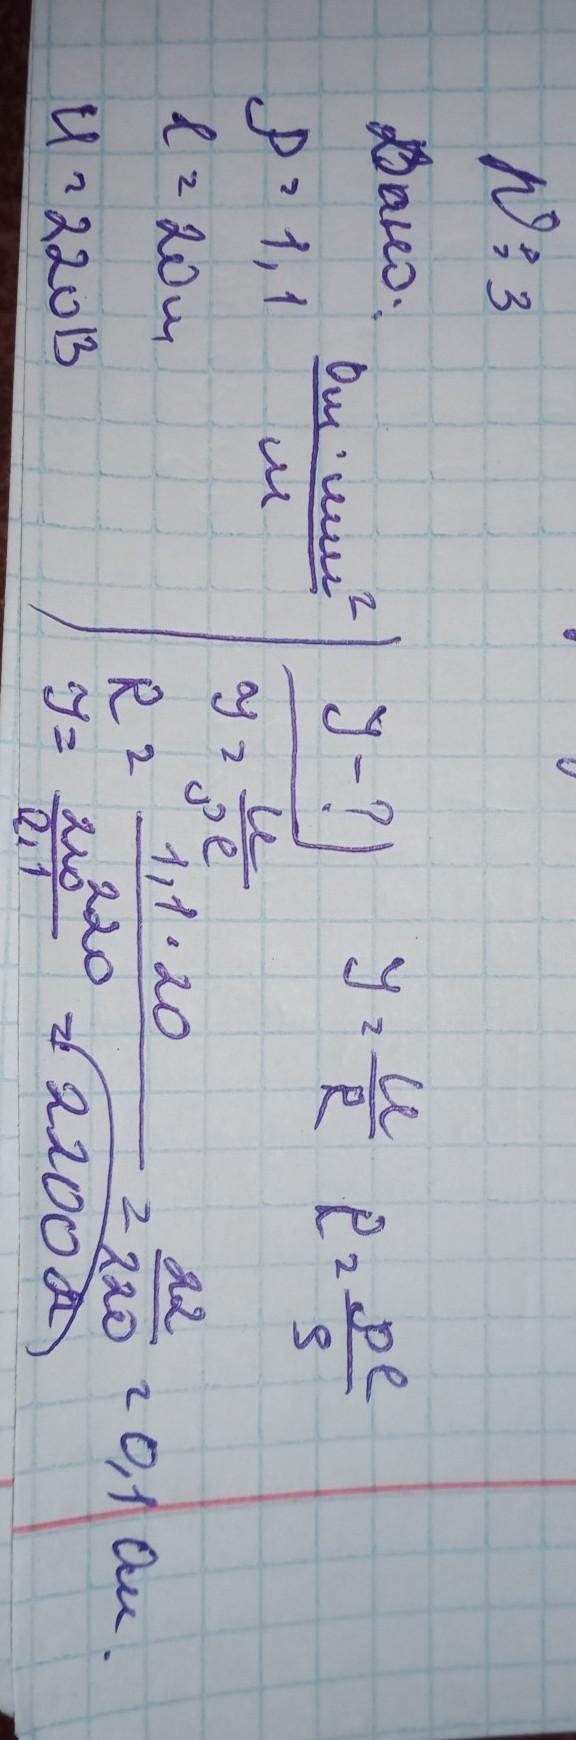 №:3
Дано:
ρ = 1,1 Ом·мм²/м
l = 20м
U = 220В
У - ?
У = U/R R = ρl/S
У = U/ρl
R = 1,1·20/ = 22/220 = 0,1 Ом.
У = 220/0,1 = 2200А